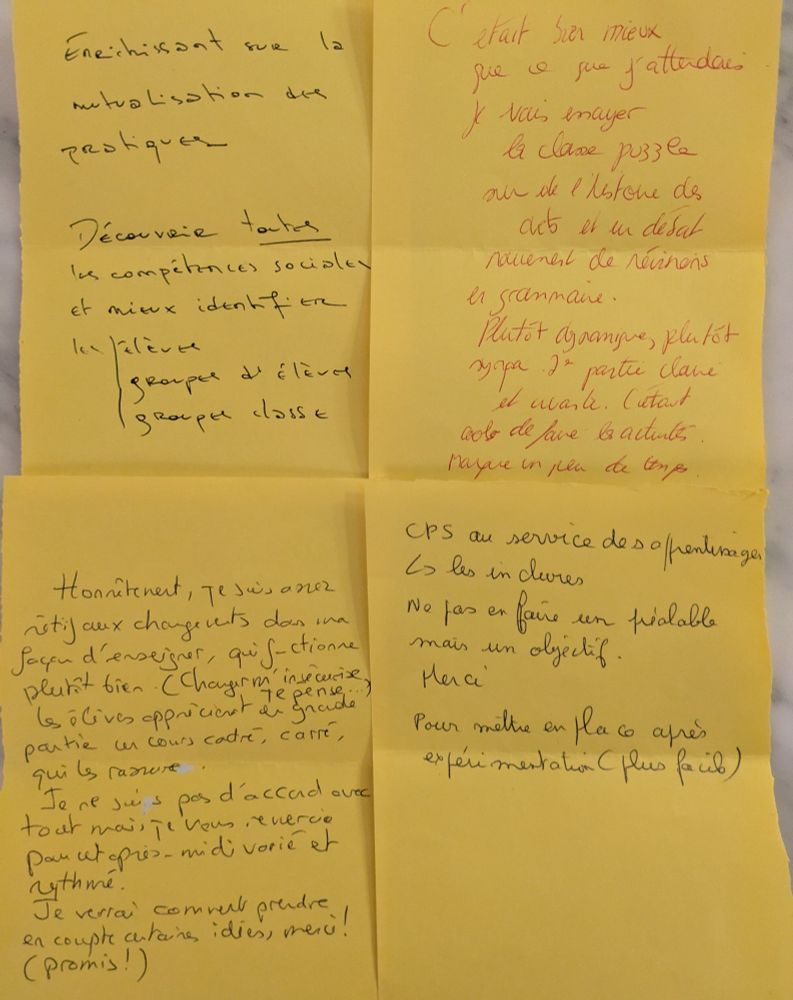 Enrichissant sur la
mutualisation des
pratiques
Découvrir toutes
les compétences sociales
et mieux identifier
les élèves
groupes d'élèves
groupe classe
C'était bien mieux
que ce que j'attendais
Je vais essayer
la classe puzzle
sur de l'histoire des
arts et un débat
mouvement de révisions
en grammaire.
Plutôt dynamique, plutôt
sympa. 2e partie claire
et vivante. C'était
cool de faire les activités.
Manque un peu de temps.
Honnêtement, je suis assez
rétif aux changements dans ma
façon d'enseigner, qui fonctionne
plutôt bien. (Changer m'insécurise,
je pense...)
les élèves apprécient en grande
partie un cours cadré, carré,
qui les rassure.
Je ne suis pas d'accord avec
tout mais je vous remercie
pour cet après-midi varié et
rythmé.
Je verrai comment prendre
en compte certaines idées, merci!
(promis!)
CPS au service des apprentissages
↳ les inclures
Ne pas en faire un préalable
mais un objectif.
Merci
Pour mettre en place après
expérimentation (plus facile)